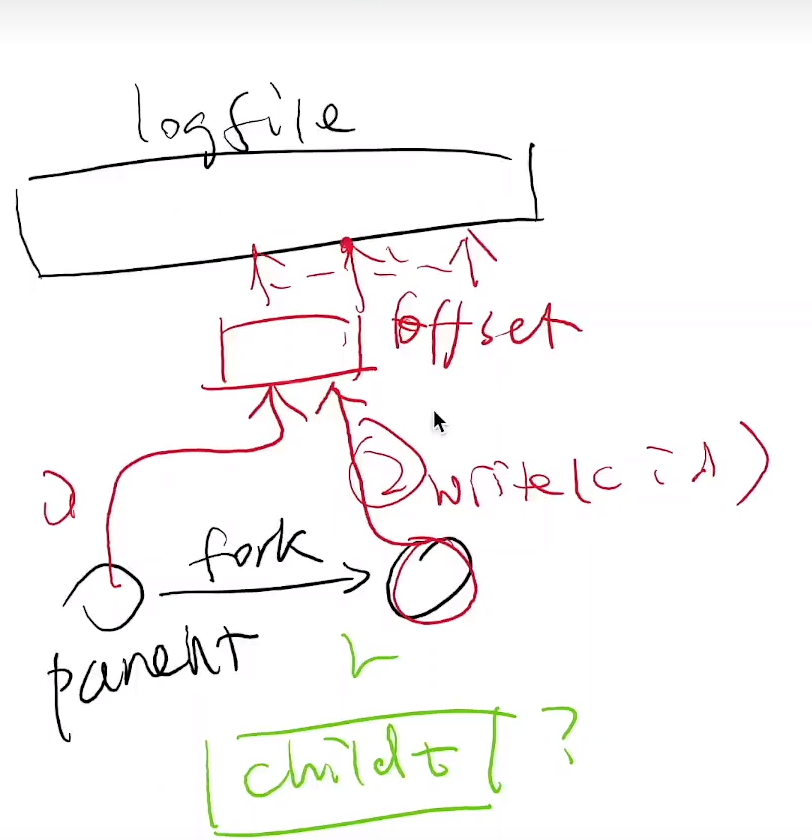 logfile
offset
② write(
fork
parent
child
?